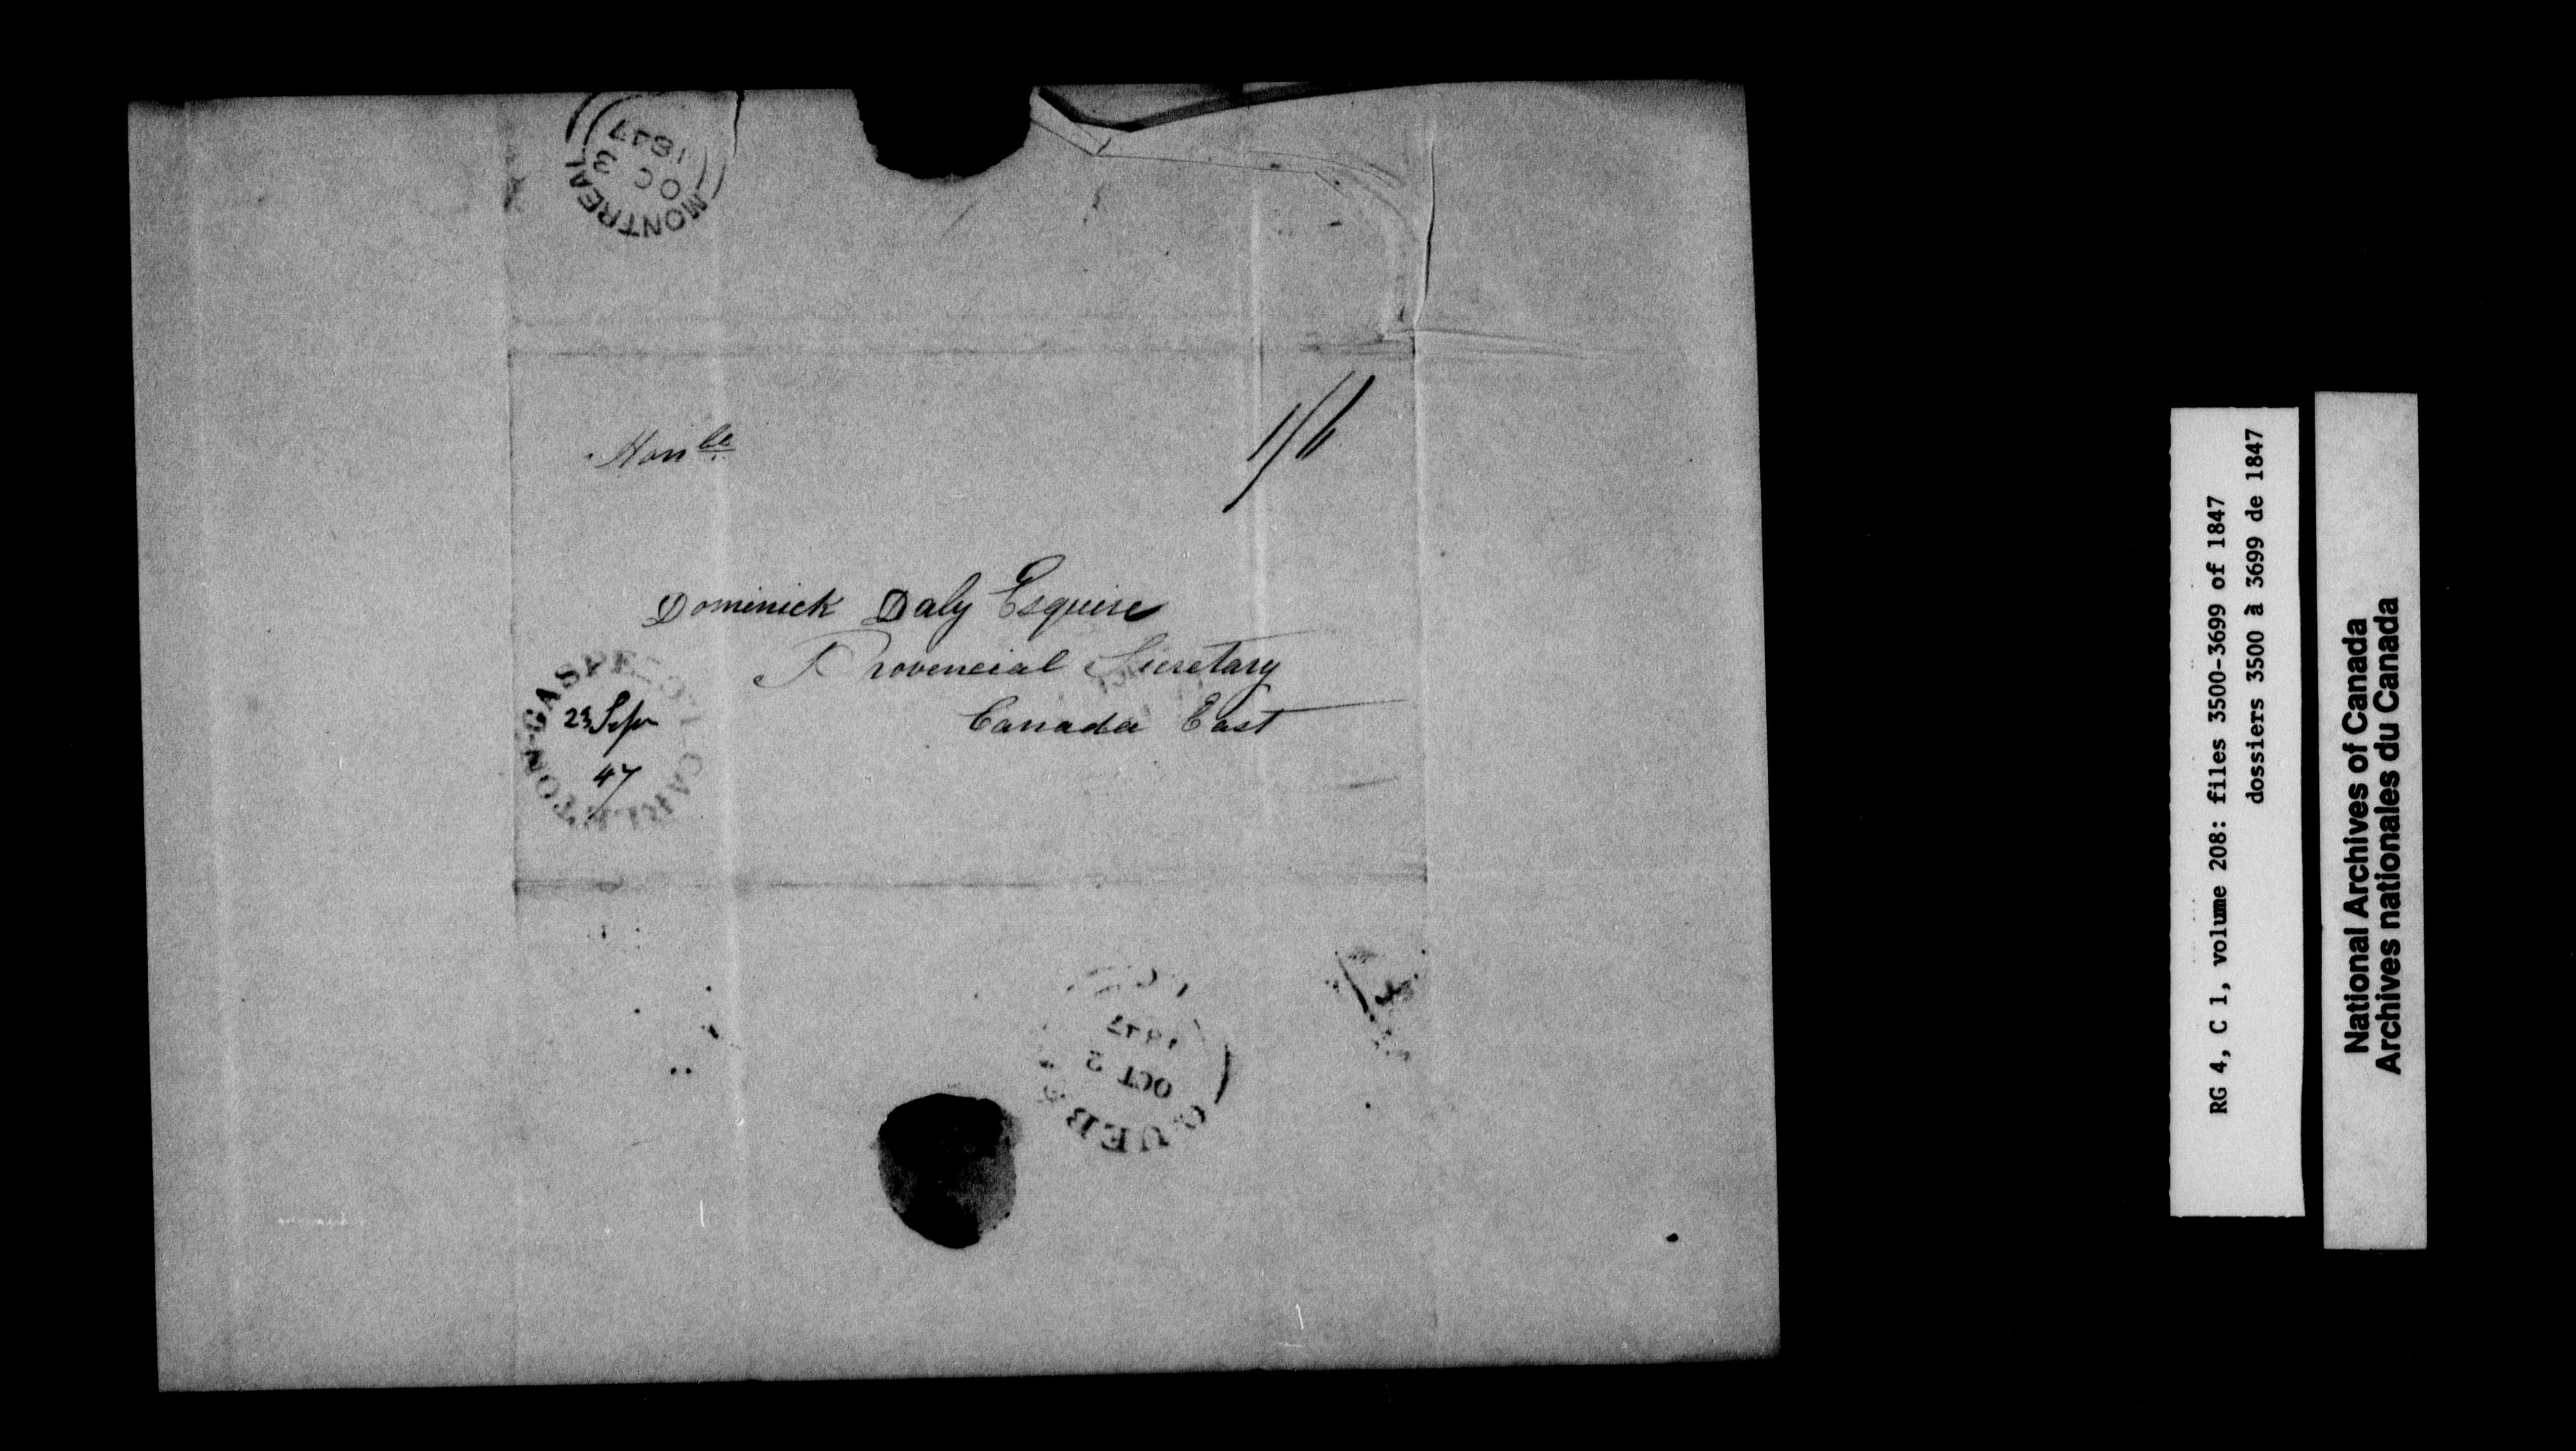 MONTREAL
OC 3
1847
Honble
1/6
Dominick Daly Esquire
Provencial Secretary
Canada East
CARLETON-GASPE
23 Sepr
47
QUEB
OCT 2
1847
RG 4, C 1, volume 208: files 3500-3699 of 1847
dossiers 3500 à 3699 de 1847
National Archives of Canada
Archives nationales du Canada